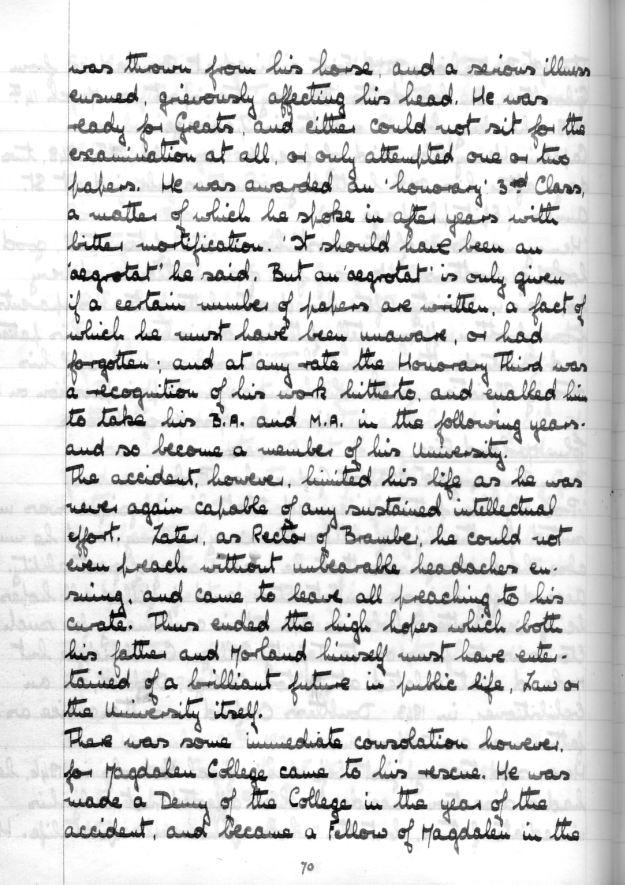 was thrown from his horse, and a serious illness
ensued, grievously affecting his head. He was
ready for Greats, and either could not sit for the
examination at all, or only attempted one or two
papers. He was awarded an 'honorary' 3rd Class,
a matter of which he spoke in after years with
bitter mortification. 'It should have been an
'aegrotat' he said. But an 'aegrotat' is only given
if a certain number of papers are written, a fact of
which he must have been unaware, or had
forgotten; and at any rate the Honorary Third was
a recognition of his work hitherto, and enabled him
to take his B.A. and M.A. in the following years.
and so become a member of his University.
The accident, however, limited his life as he was
never again capable of any sustained intellectual
effort. Later, as Rector of Bramber, he could not
even preach without unbearable headaches en-
suing, and came to leave all preaching to his
curate. Thus ended the high hopes which both
his father and Morland himself must have enter-
tained of a brilliant future in public life, Law or
the University itself.
There was some immediate consolation however,
for Magdalen College came to his rescue. He was
made a Demy of the College in the year of the
accident, and became a Fellow of Magdalen in the
70